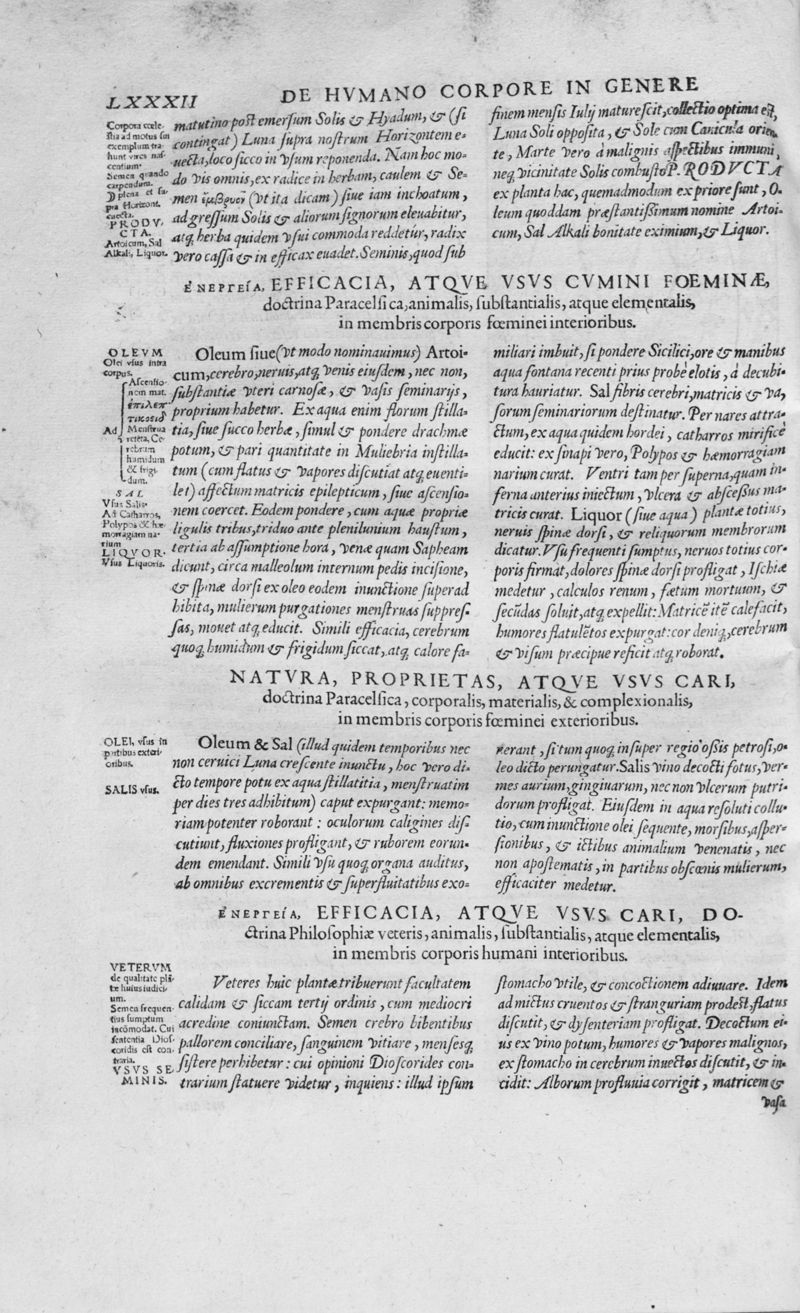 LXXXII
DE HVMANO CORPORE IN GENERE
Corpora cœle-
stia ad motus sui
exemplum tra-
hunt vires nas-
centium.
Semen quando
carpendum.
☽ plena et su-
pra Horizont.
euecta.
PRODV.
CTA.
Artoicum, Sal
Alkali, Liquor.
matutino post emersum Solis & Hyadum, & (si
contingat) Luna supra nostrum Horizontem e-
uecta, loco sicco in vsum reponenda. Nam hoc mo-
do vis omnis, ex radice in herbam, caulem & Se-
men (vt ita dicam) siue iam inchoatum,
ad gressum Solis & aliorum signorum eleuabitur,
atq; herba quidem vsui commoda reddetur, radix
vero cassa & in efficax euadet. Seminis, quod sub
finem mensis Iulij maturescit, collectio optima est,
Luna Soli opposita, & Sole cum Canicula orien-
te, Marte vero à malignis aspectibus immuni,
neq; vicinitate Solis combusto P. RODVCTA
ex planta hac, quemadmodum ex priore sunt, O-
leum quoddam præstantißimum nomine Artoi-
cum, Sal Alkali bonitate eximium, & Liquor.
ἐνεργεία, EFFICACIA, ATQVE VSVS CVMINI FOEMINÆ,
doctrina Paracelsica, animalis, substantialis, atque elementalis,
in membris corporis fœminei interioribus.
OLEVM
Olei vsus intra
corpus.
Ad
Ascensio-
nem mat.
ἐπιληπ
τικοειδ
Menstrua
retēta, Ce-
rebrum
humidum
& frigi-
dum.
SAL
Vsus Salis.
Ad Catharros,
Polypos & hæ-
morragiam na-
rium
LIQVOR.
Vsus Liquoris.
Oleum siue (vt modo nominauimus) Artoi-
cum, cerebro, neruis, atq; venis eiusdem, nec non,
substantiæ vteri carnosæ, & vasis seminarijs,
proprium habetur. Ex aqua enim florum stilla-
tia, siue succo herbæ, simul & pondere drachmæ
potum, & pari quantitate in Muliebria instilla-
tum (cum flatus & vapores discutiat atq; euenti-
let) affectum matricis epilepticum, siue ascensio-
nem coercet. Eodem pondere, cum aquæ propriæ
ligulis tribus, triduo ante plenilunium haustum,
tertia ab assumptione hora, venæ quam Sapheam
dicunt, circa malleolum internum pedis incisione,
& spinæ dorsi ex oleo eodem inunctione superad
hibita, mulierum purgationes menstruas suppres-
sas, mouet atq; educit. Simili efficacia, cerebrum
quoq; humidum & frigidum siccat, atq; calore fa-
miliari imbuit, si pondere Sicilici, ore & manibus
aqua fontana recenti prius probè elotis, à decubi-
tu hauriatur. Sal fibris cerebri, matricis & va-
sorum seminariorum destinatur. Per nares attra-
ctum, ex aqua quidem hordei, catharros mirificè
educit: ex sinapi vero, Polypos & hæmorragiam
narium curat. Ventri tam per superna, quam in-
ferna anterius iniectum, vlcera & abscessus ma-
tricis curat. Liquor (siue aqua) plantæ totius,
neruis spinæ dorsi, & reliquorum membrorum
dicatur. Vsu frequenti sumptus, neruos totius cor-
poris firmat, dolores spinæ dorsi profligat, Ischiæ
medetur, calculos renum, fœtum mortuum, &
secūdas soluit, atq; expellit: Matricē itē calefacit,
humores flatulētos expurgat: cor deniq;, cerebrum
& visum præcipue reficit atq; roborat.
NATVRA, PROPRIETAS, ATQVE VSVS CARI,
doctrina Paracelsica, corporalis, materialis, & complexionalis,
in membris corporis fœminei exterioribus.
OLEI, vsus in
partibus exteri-
oribus.
SALIS vsus.
Oleum & Sal (illud quidem temporibus nec
non ceruici Luna crescente inunctu, hoc vero di-
cto tempore potu ex aqua stillatitia, menstruatim
per dies tres adhibitum) caput expurgant: memo-
riam potenter roborant: oculorum caligines dis-
cutiunt, fluxiones profligant, & ruborem eorun-
dem emendant. Simili vsu quoq; organa auditus,
ab omnibus excrementis & superfluitatibus exo-
nerant, si tum quoq; insuper regio ossis petrosi, o-
leo dicto perungatur. Salis vino decocti fotus, ver-
mes aurium, gingiuarum, nec non vlcerum putri-
dorum profligat. Eiusdem in aqua resoluti collu-
tio, cum inunctione olei sequente, morsibus, asper-
sionibus, & ictibus animalium venenatis, nec
non apostematis, in partibus obscœnis mulierum,
efficaciter medetur.
ἐνεργεία, EFFICACIA, ATQVE VSVS CARI, DO-
ctrina Philosophiæ veteris, animalis, substantialis, atque elementalis,
in membris corporis humani interioribus.
VETERVM
de qualitate plā-
tæ huius iudici-
um.
Semen frequen-
tius sumptum
incōmodat. Cui
sententia Dios-
coridis est con-
traria.
VSVS SE
MINIS.
Veteres huic plantæ tribuerunt facultatem
calidam & siccam tertij ordinis, cum mediocri
acredine coniunctam. Semen crebro bibentibus
pallorem conciliare, sanguinem vitiare, mensesq;
sistere perhibetur: cui opinioni Dioscorides con-
trarium statuere videtur, inquiens: illud ipsum
stomacho vtile, & concoctionem adiuuare. Idem
ad mictus cruentos & stranguriam prodest, flatus
discutit, & dysenteriam profligat. Decoctum ei-
us ex vino potum, humores & vapores malignos,
ex stomacho in cerebrum inuectos discutit, & in-
cidit: Alborum profluuia corrigit, matricem &
vasa